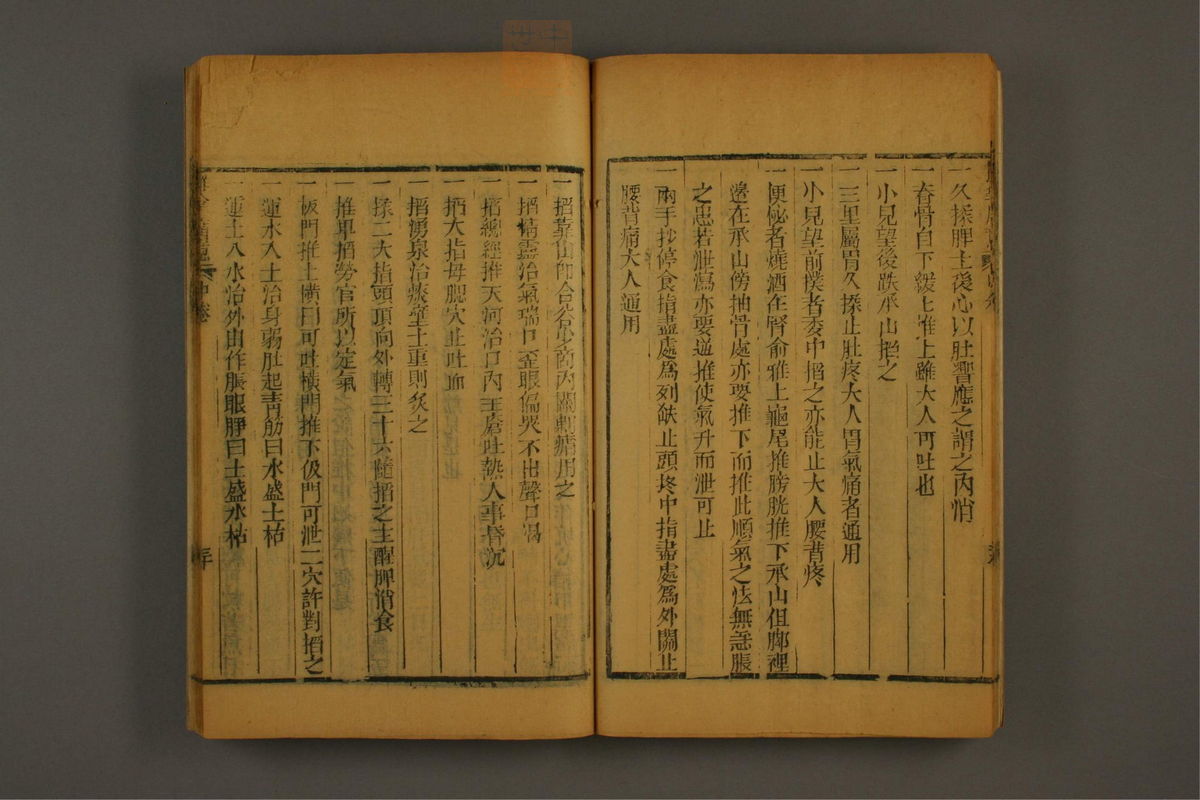 一久揉脾土後心以肚響應之謂之內消
一脊骨自下緩七推上雖大人可吐也
一小兒望後跌承山掐之
一三里屬胃久揉止肚疼大人胃氣痛者通用
一小兒望前撲者委中掐之亦能止大人腰背疼
一便秘者燒酒在腎俞推上龜尾推膀胱推下承山但脚裡
邊在承山傍抽骨處亦要推下而推此順氣之法無急脹
之患若泄瀉亦要逆推使氣升而泄可止
一兩手抄停食指盡處為列缺止頭疼中指盡處為外關止
腰背痛大人通用
一掐靠山即合谷少商內關剿瘧用之
一掐精靈治氣瑞口歪眼偏哭不出聲口渴
一掐總經推天河治口內生瘡吐熱人事昏沉
一掐大指母腮穴止吐血
一掐湧泉治痰壅上重則灸之
一揉二大指頭頂向外轉三十六隨掐之主醒脾消食
一推車掐勞宮所以定氣
一板門推上橫曰可吐橫門推下伋門可泄二穴許對掐之
一運水入土治身弱肚起青筋曰水盛土枯
一運土入水治外由作脹眼睜曰土盛水枯
中卷